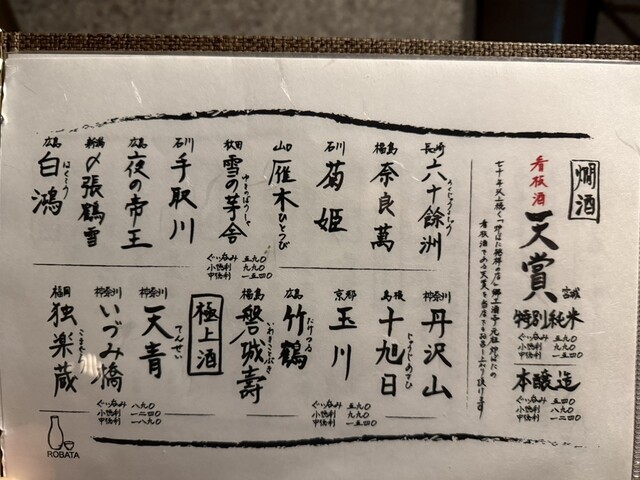 燗酒
看板酒
天賞
宮城
特別純米
ぐい呑み 五九〇
小徳利 九九〇
中徳利 一五四〇
本醸造
ぐい呑み 五四〇
小徳利 八四〇
中徳利 一三四〇
看板酒である天賞を当店でもお召し上がり頂けます
長崎
六十餘洲
ろくじゅうよしゅう
福島
奈良萬
石川
菊姫
山口
雁木ひとつび
秋田
雪の茅舎
ゆきのぼうしゃ
石川
手取川
広島
夜の帝王
新潟
〆張鶴雪
広島
白鴻
はくこう
ぐい呑み 五九〇
小徳利 九九〇
中徳利 一五四〇
神奈川
丹沢山
島根
十旭日
じゅうじあさひ
京都
玉川
広島
竹鶴
たけつる
福島
磐城壽
いわきことぶき
ぐい呑み 五九〇
小徳利 九九〇
中徳利 一五四〇
極上酒
神奈川
天青
てんせい
神奈川
いづみ橋
福岡
独楽蔵
こまぐら
ぐい呑み 八九〇
小徳利 一二四〇
中徳利 一八九〇
ROBATA